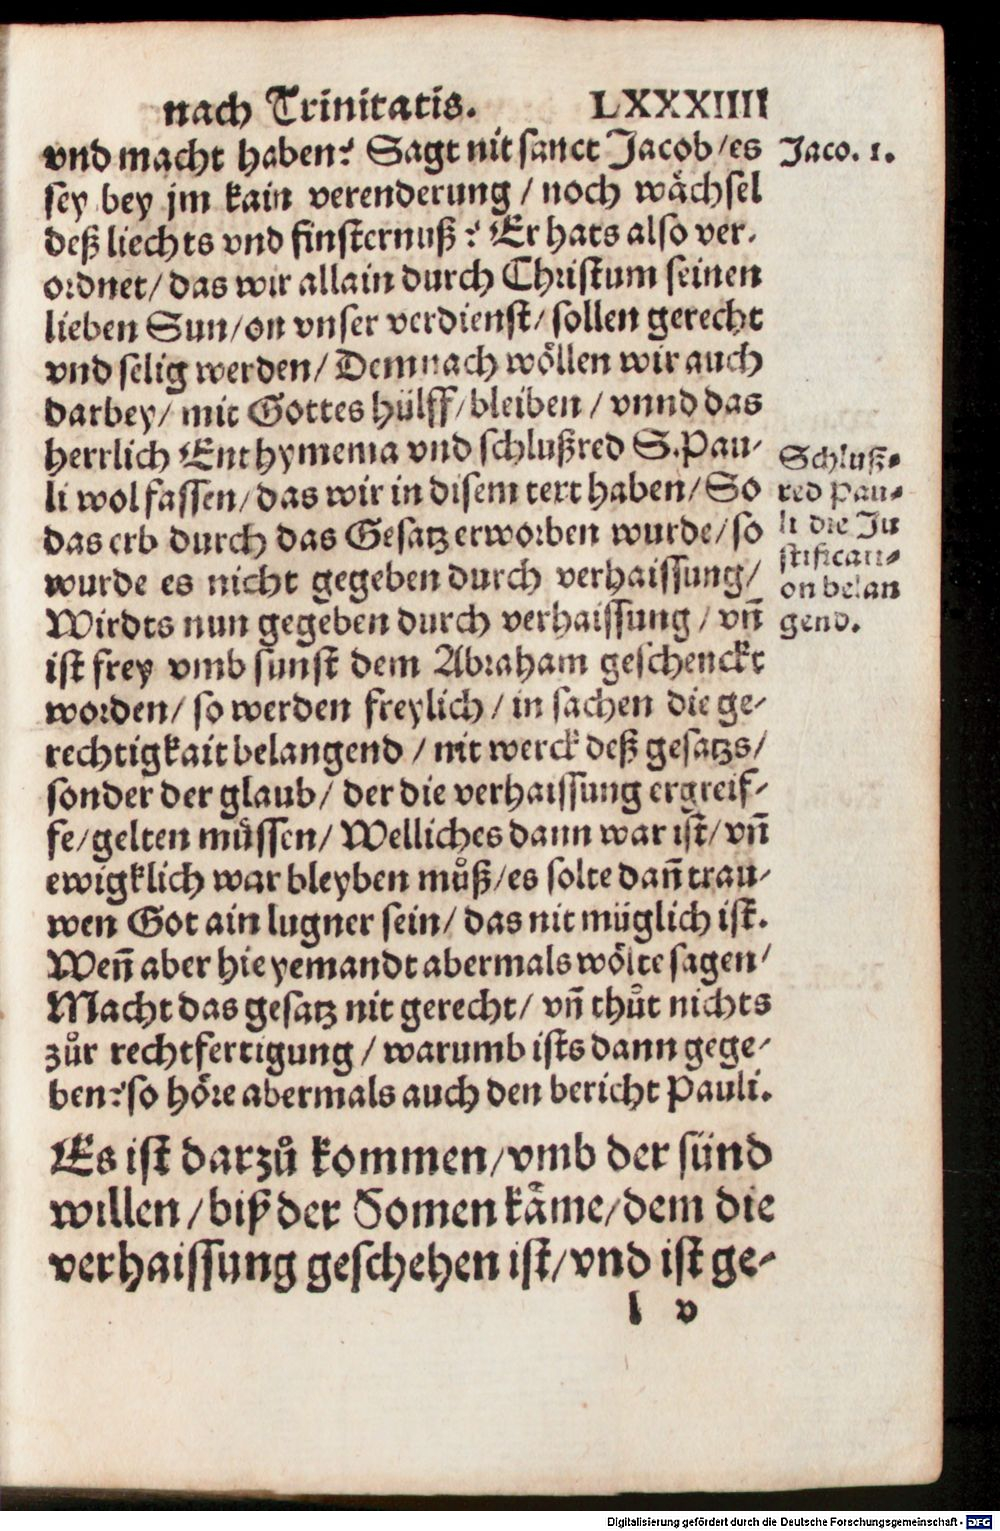 nach Trinitatis. LXXXIIII
vnd macht haben? Sagt nit sanct Jacob/es
Jaco. 1.
sey bey jm kain verenderung / noch wächsel
deß liechts vnd finsternuß? Er hats also ver-
ordnet/ das wir allain durch Christum seinen
lieben Sun/on vnser verdienst/ sollen gerecht
vnd selig werden/ Demnach wöllen wir auch
darbey/ mit Gottes hülff/bleiben / vnnd das
herrlich Enthymema vnd schlußred S.Pau-
li wol fassen/das wir in disem text haben/ So
das erb durch das Gesatz erworben wurde/so
wurde es nicht gegeben durch verhaissung/
Wirdts nun gegeben durch verhaissung / vn̄
Schluß-
red Pau-
li die Ju
stificati-
on belan
gend.
ist frey vmb sunst dem Abraham geschenckt
worden/ so werden freylich / in sachen die ge-
rechtigkait belangend / nit werck deß gesatzs/
sonder der glaub/ der die verhaissung ergreif-
fe/gelten muͤssen/ Welliches dann war ist/ vn̄
ewigklich war bleyben muͦß/es solte dan̄ trau-
wen Got ain lugner sein/ das nit müglich ist.
Wen̄ aber hie yemandt abermals wölte sagen/
Macht das gesatz nit gerecht/ vn̄ thuͦt nichts
zuͦr rechtfertigung / warumb ists dann gege-
ben? so höre abermals auch den bericht Pauli.
Es ist darzuͦ kommen/vmb der sünd
willen /biß der Somen käme/dem die
verhaissung geschehen ist/vnd ist ge-
l v
Digitalisierung gefördert durch die Deutsche Forschungsgemeinschaft - DFG